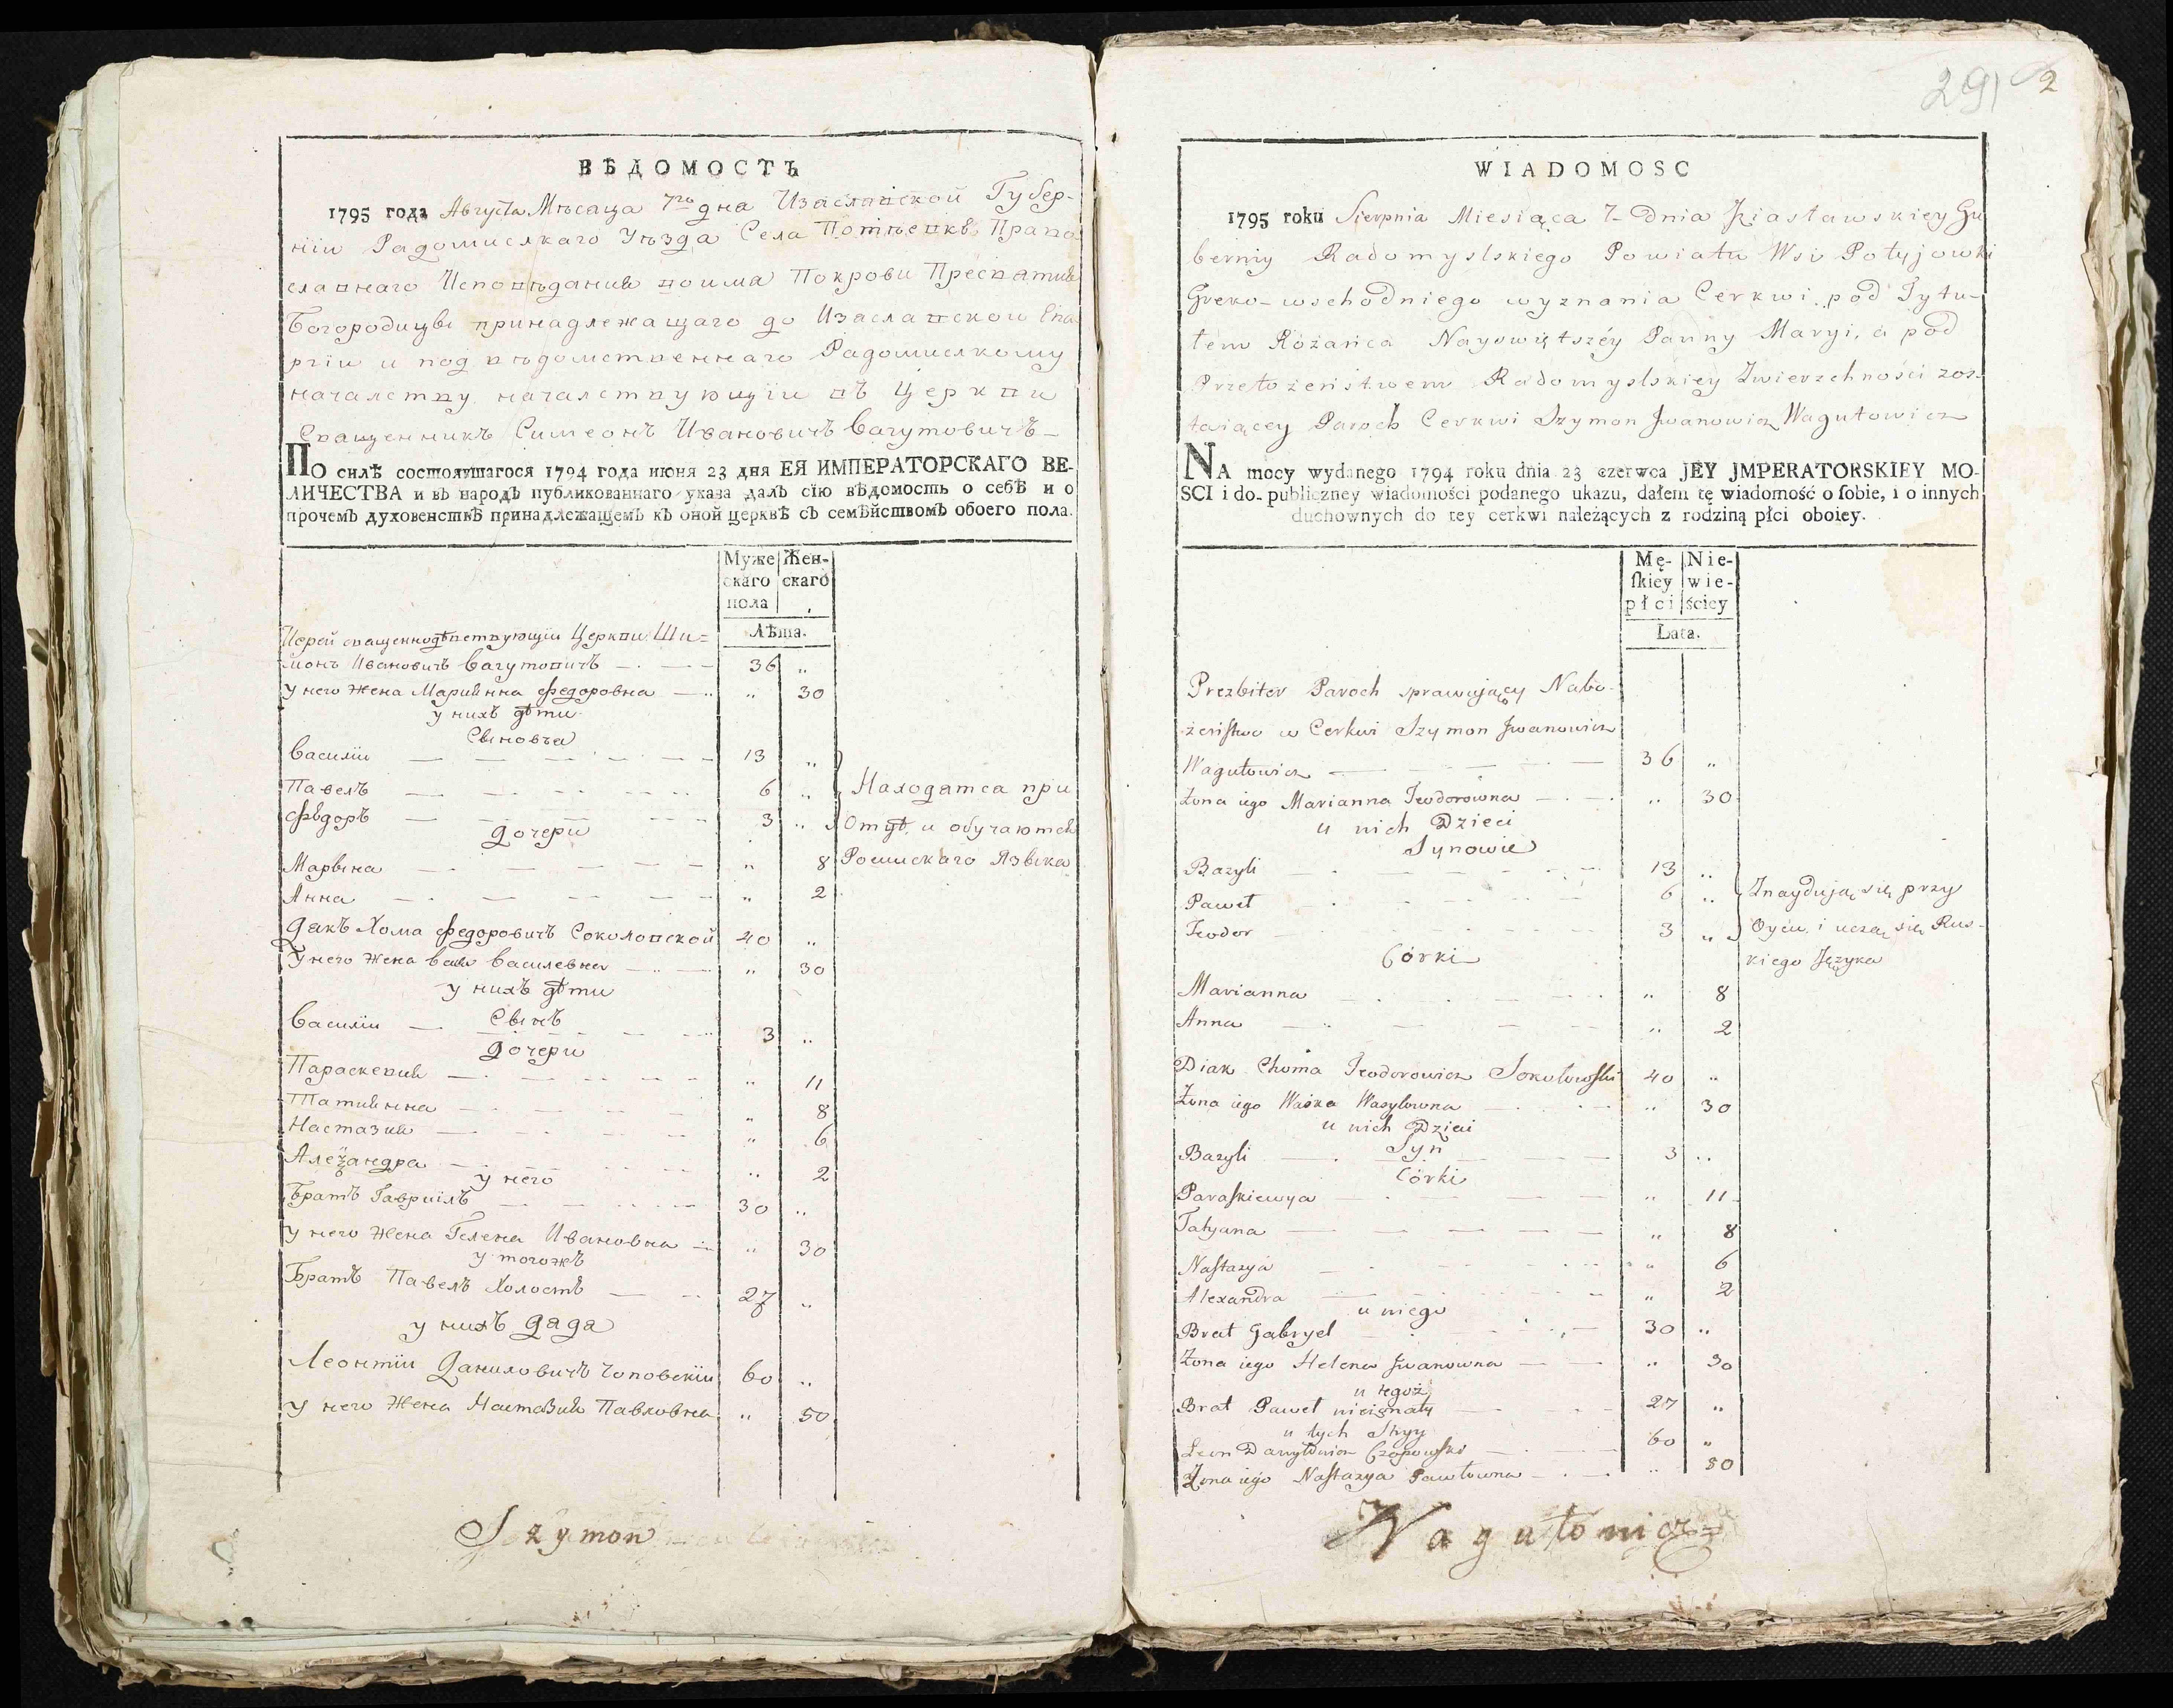 ВѢДОМОСТЬ
1795 года Августа Мѣсаца 7го дна Изаславской Губер-
ніи Радомислкаго Уѣзда Села Потѣевкѣ Право
славнаго Исповѣдания воима Покрови Пресвятия
Богородицы принадлежащаго до Изаславской Епа
рхіи и под вѣдомственнаго Радомислкому
началству началствующіи въ Церкви
Сващенникъ Симеонъ Ивановичъ Вагутовичъ
ПО силѣ состоявшагося 1794 года июня 23 дня ЕЯ ИМПЕРАТОРСКАГО ВЕ-
ЛИЧЕСТВА и въ народъ публикованнаго указа далъ сїю вѣдомость о себѣ и о
прочемъ духовенствѣ принадлежащемъ къ оной церквѣ съ семѣйствомъ обоего пола.
Муже Жен-
скаго скаго
пола
Лѣта.
Иерей сващеннодѣйствующіи Церкви Ши=
монъ Ивановичъ Вагутовичъ 36 „
у него Жена Мариянна Федоровна „ 30
у нихъ дѣти
Сыновъа
Василіи 13 „
Павелъ 6 „ Находатса при
Фѣдоръ 3 „ Отцѣ и обучаются
дочери
Марына „ 8 Росискаго Языка
Анна „ 2
Дакъ Хома Федоровичъ Соколовской 40 „
У него Жена Василевна „ 30
у нихъ дѣти
Сынъ
Василіи 3 „
Дочери
Параскевия „ 11
Татиянна „ 8
Настазия „ 6
Алеѯандра „ 2
у него
Братъ Гавриілъ 30 „
у него Жена Гелена Ивановна „ 30
у тогожъ
Братъ Павелъ Холостъ 27 „
у нихъ Дада
Леонтіи Даниловичъ Чоповскіи 60 „
у него Жена Настазия Павловна „ 50
Szymon
291 2
WIADOMOSC
1795 roku Sierpnia Miesiąca 7- Dnia Iziasławskiey Gu
berniy Radomyslskiego Powiatu Wsi Potyjowki
Greko-wschodniego wyznania Cerkwi pod Tytu-
łem Różańca Nayswiętszéy Panny Maryi, a pod
Przełożeństwem Radomyslskiey Zwierzchności zos-
taiącey Paroch Cerkwi Szymon Jwanowicz Wagutowicz
NA mocy wydanego 1794 roku dnia 23 czerwca JEY JMPERATORSKIEY MO-
SCI i do publiczney wiadomości podanego ukazu, dałem tę wiadomość o sobie, i o innych
duchownych do tey cerkwi należących z rodziną płci oboiey.
Mę- Nie-
skiey wie-
płci ściey
Lata.
Prezbiter Paroch sprawujący Nabo-
żeństwo w Cerkwi Szymon Jwanowicz
Wagutowicz 36 „
Żona iego Marianna Teodorowna „ 30
u nich Dzieci
Synowie
Bazyli 13 „
Paweł 6 „ Znaydują się przy
Teodor 3 „ Oycu i uczą się Rus-
Córki kiego Języka
Marianna „ 8
Anna „ 2
Diak Choma Teodorowicz Sokołowski 40 „
Żona iego Waska Wasylowna „ 30
u nich Dzieci
Syn
Bazyli 3 „
Córki
Paraskiewya „ 11
Tatyana „ 8
Nastazya „ 6
Alexandra „ 2
u niego
Brat Gabryel 30 „
Żona iego Helena Jwanowna „ 30
u tegoż
Brat Paweł nieżonaty 27 „
u tych Stryy
Leon Danyłowicz Czopowski 60 „
Żona iego Nastazya Pawłowna „ 50
Wagutowicz